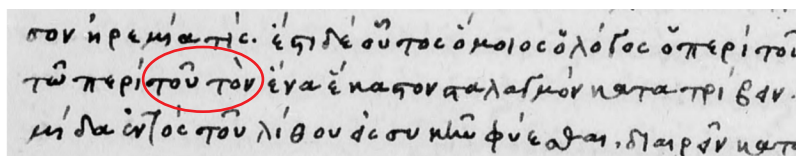 σον ἠρεμία τίς. ἔτι δὲ οὗτος ὅμοιος ὁ λόγος ὁ περὶ τοῦ
τῶ περὶ τοῦ τὸν ἕνα ἕκαστον σταλαγμὸν κατατρίβειν.
ἐντὸς τοῦ λίθου φύεσθαι, διαιρεῖν κατα